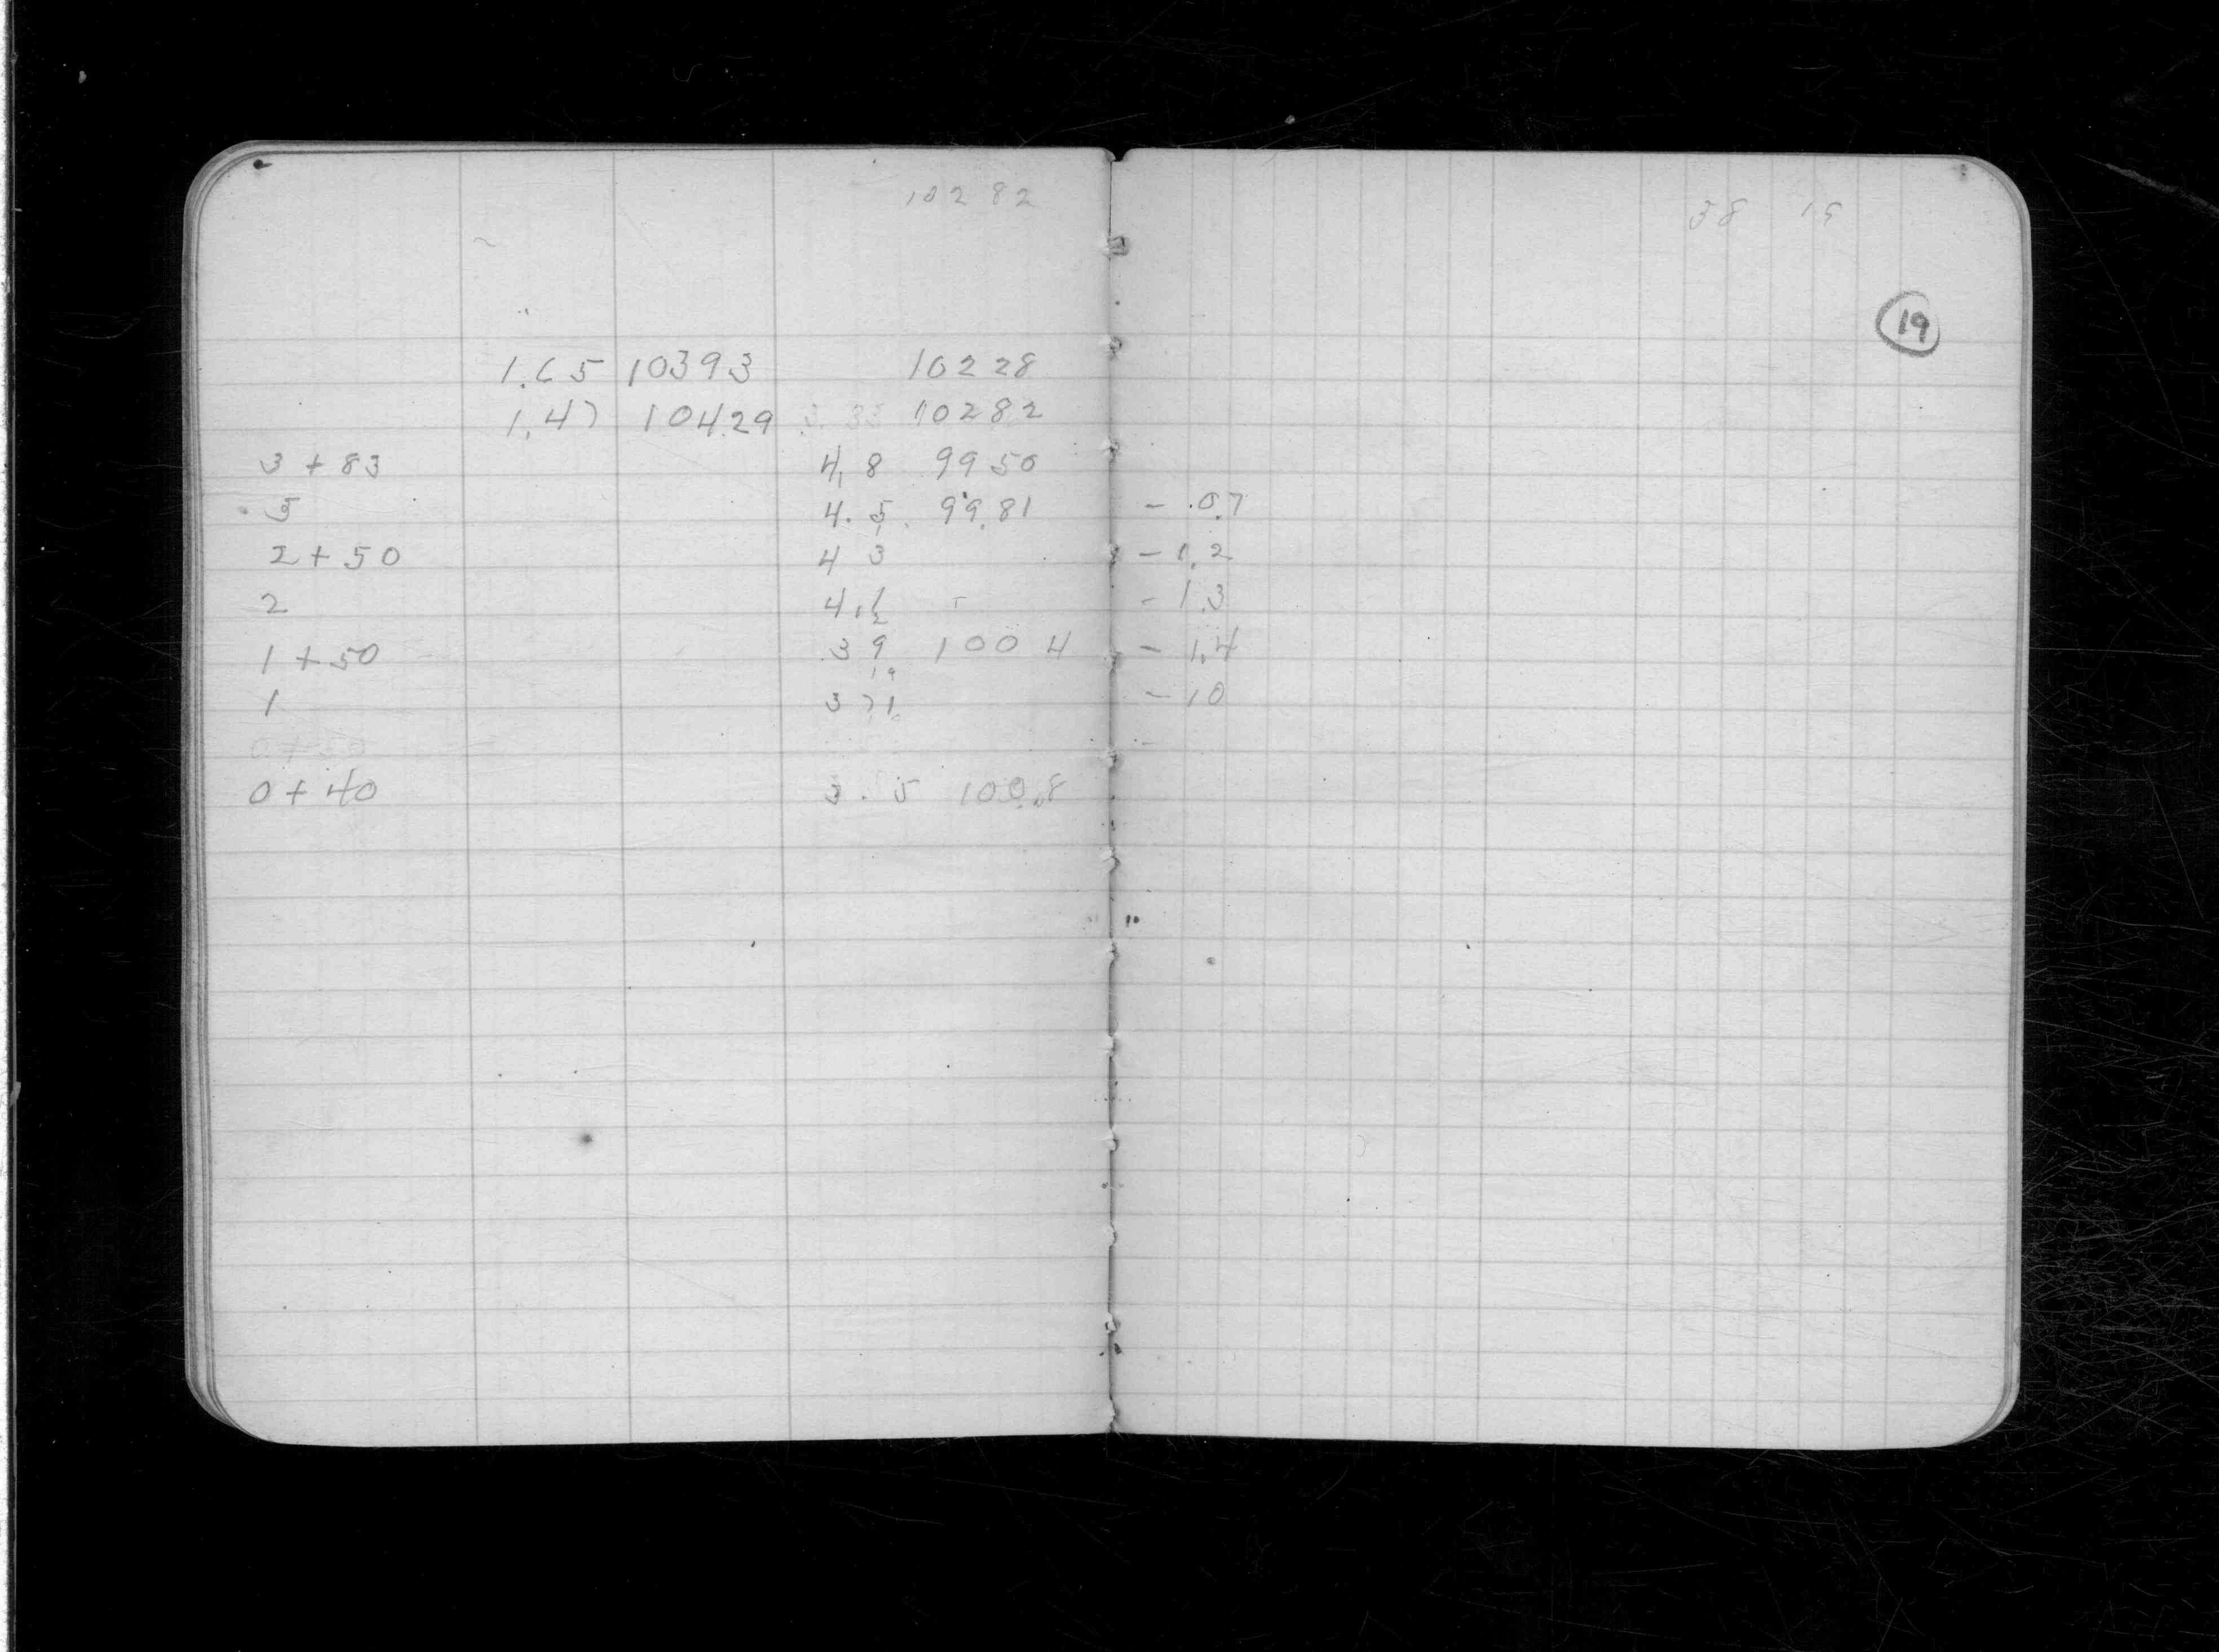 10282
38 19
19
1.65 10393 10228
1.47 10429 10282
3 + 83 4.8 9950
3 4.5 99.81 - .07
2 + 50 4 3 - 1.2
2 4.1 - 1.3
1 + 50 3 9 100 4 - 1.4
1 3 7 - 10
0 + 50
0 + 40 3.5 100.8